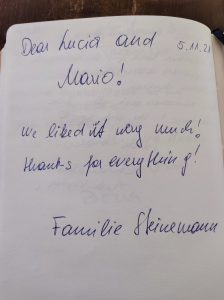 Dear Lucia and
5.11.21
Mario!
We liked it very much!
Thanks for everything!
Familie Steinemann